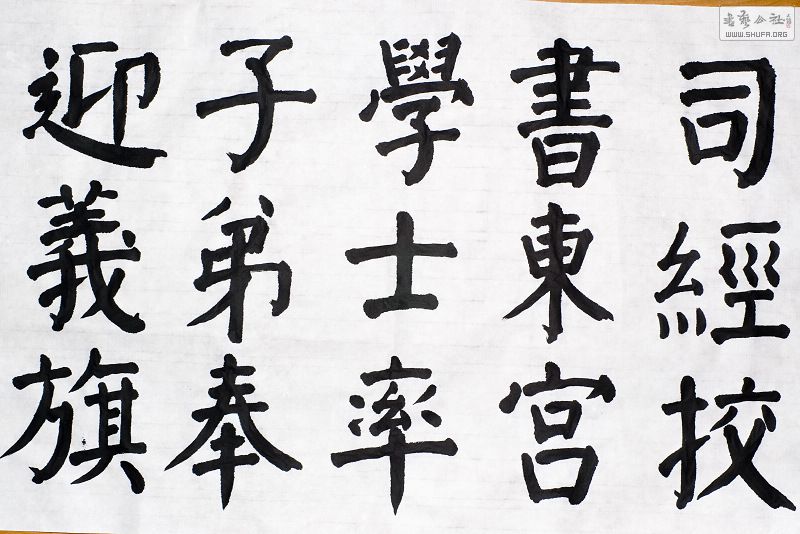 司經校
書東宮
學士率
子弟奉
迎義旗
書藝公社
WWW.SHUFA.ORG